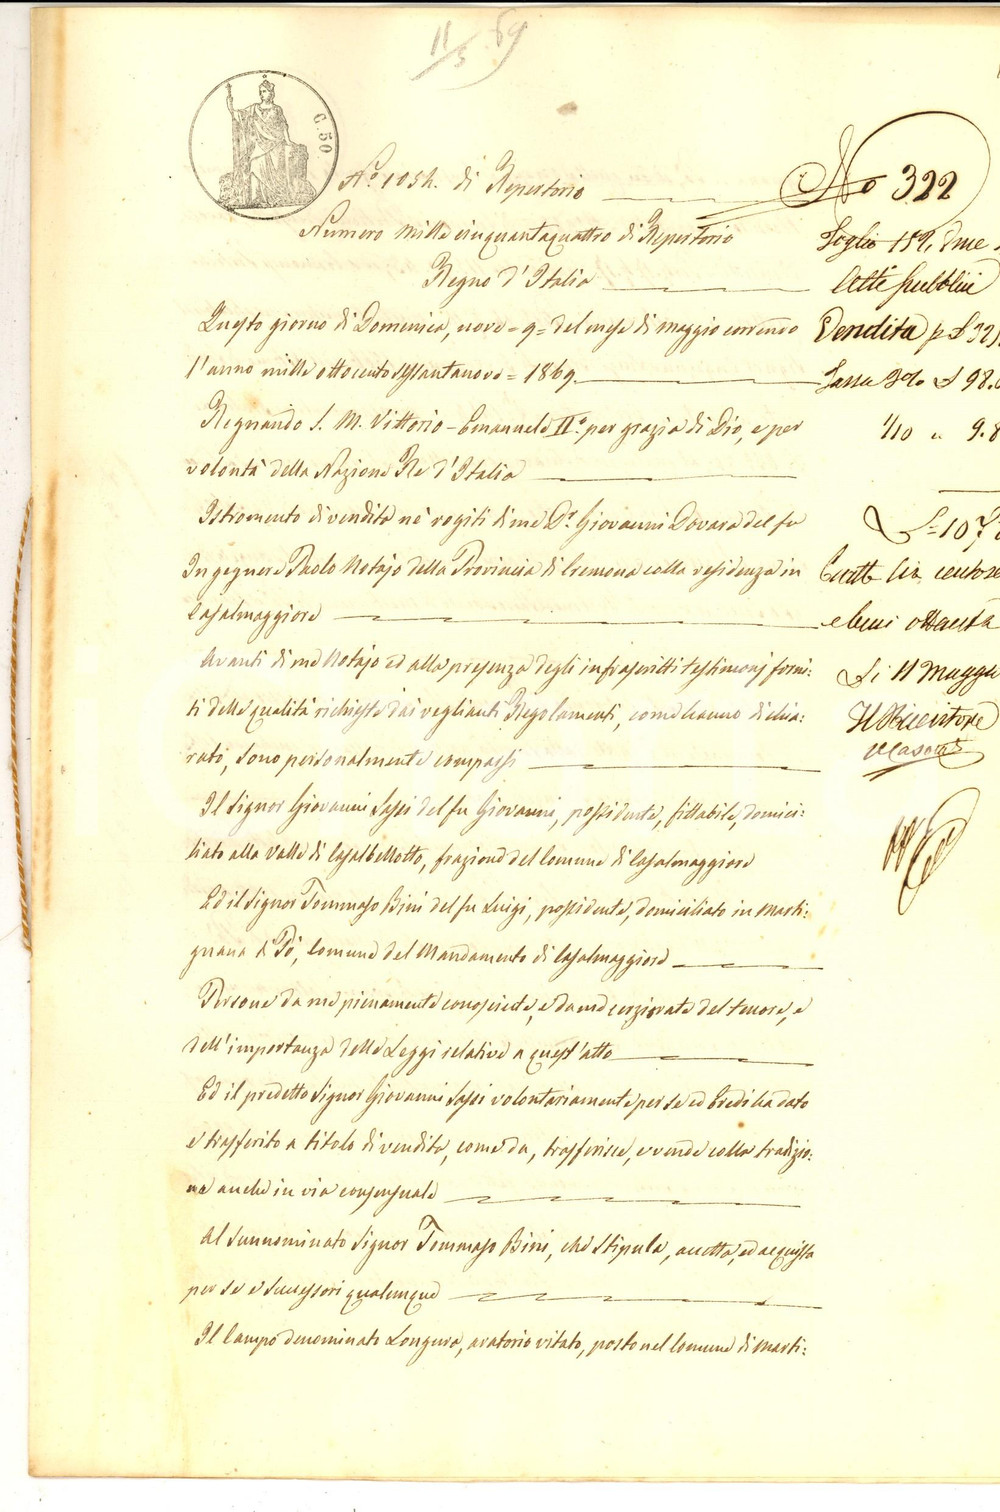 11/5 69
C. 50
N.o 1054. di Repertorio
Numero mille cinquantaquattro di Repertorio
Regno d'Italia
Questo giorno di Domenica, nove = 9 = del mese di maggio correndo
l'anno mille ottocento sessantanove = 1869.
Regnando S. M. Vittorio - Emanuele II.o per grazia di Dio, e per
volontà della Nazione Re d'Italia
Istromento di vendita ne' rogiti di me D.r Giovanni Dovara del fu
Ingegnere Paolo Notajo della Provincia di Cremona colla residenza in
Casalmaggiore
Avanti di me Notajo ed alla presenza degli infrascritti testimonj forni:
ti delle qualità richieste dai veglianti Regolamenti, come hanno dichia:
rato, sono personalmente comparsi
Il Signor Giovanni Sassi del fu Giovanni, possidente, fittabile, domici:
liato alla Valle di Casalbellotto, frazione del Comune di Casalmaggiore
Ed il Signor Tommaso Bini del fu Luigi, possidente, domiciliato in Marti:
gnana di Pò, Comune del Mandamento di Casalmaggiore
Persone da me pienamente conosciute, e da me cerziorate del tenore, e
dell'importanza delle Leggi relative a quest'atto
Ed il predetto Signor Giovanni Sassi volontariamente per se ed Eredi ha dato
e trasferito a titolo di vendita, come dà, trasferisce, e vende colla tradizio:
ne anche in via consensuale
Al sunnominato Signor Tommaso Bini, che stipula, accetta, ed acquista
per se e successori qualunque
Il Campo denominato Longura, aratorio vitato, posto nel Comune di Marti:
No 322
Foglio 152,
Atti pubblici
Vendita p £ 32
Tassa 3% £ 98.
1/10 " 9.8
£ 107
e beni ottanta
Li 11 Maggio
Il Ricevitore